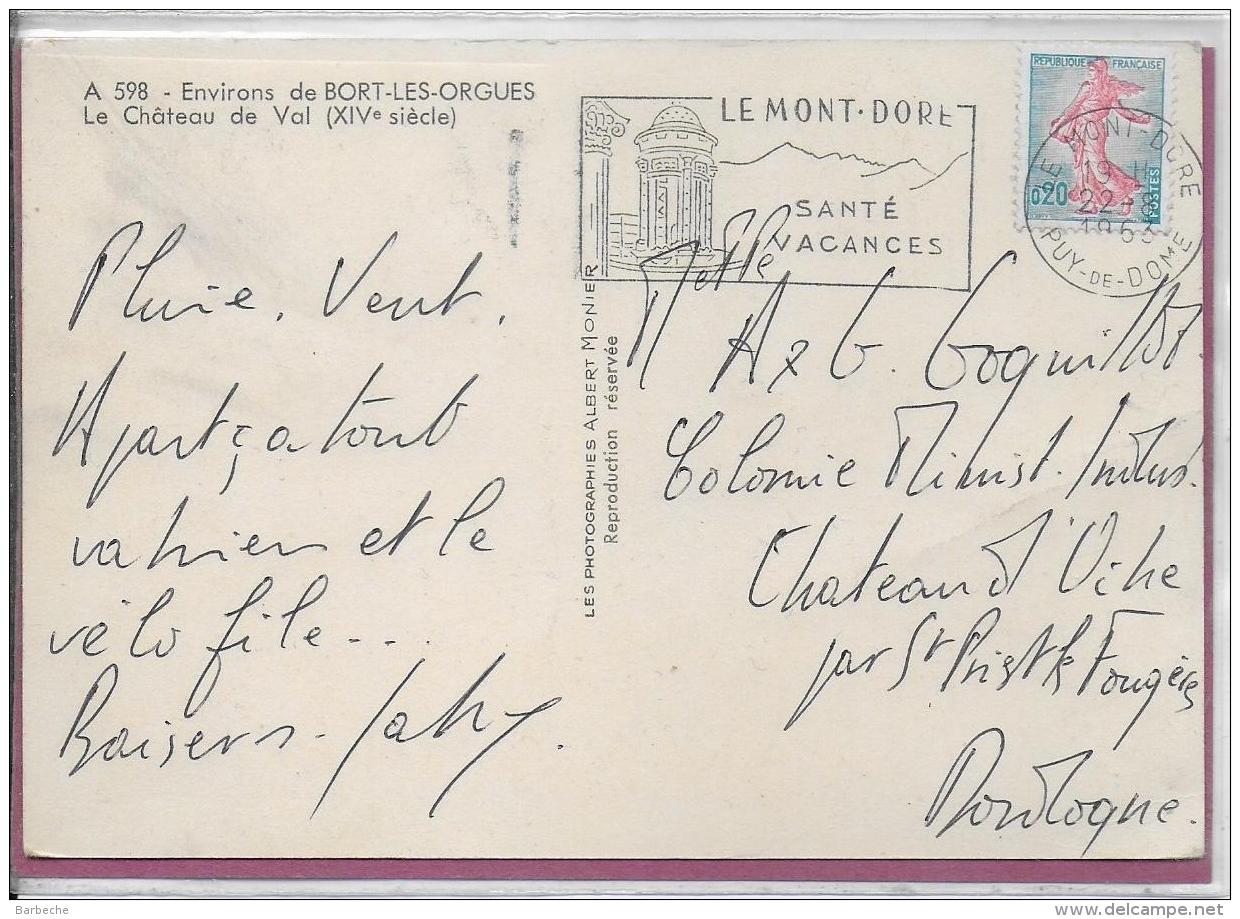 A 598 - Environs de BORT-LES-ORGUES
Le Château de Val (XIVe siècle)
LE MONT-DORE
SANTÉ
VACANCES
REPUBLIQUE FRANÇAISE
0,20
POSTES
LE MONT-DORE
19 H
22-8
1963
PUY-DE-DOME
LES PHOTOGRAPHIES ALBERT MONIER
Reproduction réservée
Pluie. Vent.
A part ça tout
va bien et le
vélo file...
Baisers.
A & G.
Colonie Minist. Indus.
Chateau d'
par St Priest les Fougères
Dordogne.
Barbeche
delcampe.net